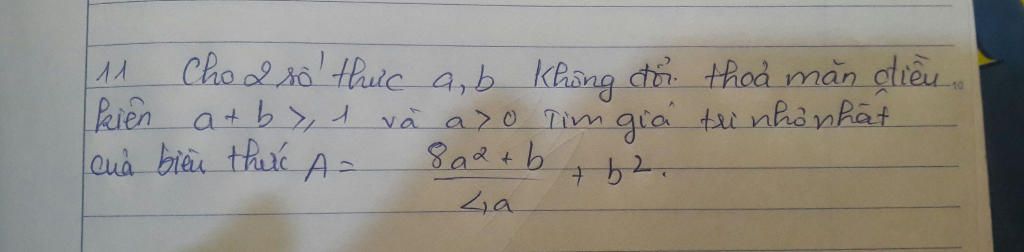 11 Cho 2 số thực a, b không đổi. thoả mãn điều
kiện a + b ≥ 1 và a > 0 Tìm giá trị nhỏ nhất
của biểu thức A = (8a² + b)/4a + b².